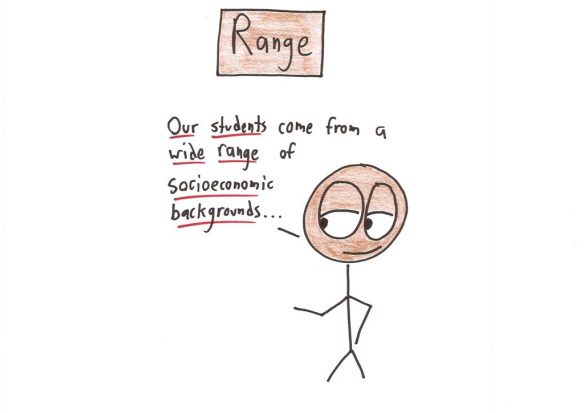 Range
Our students come from a
wide range of
socioeconomic
backgrounds...